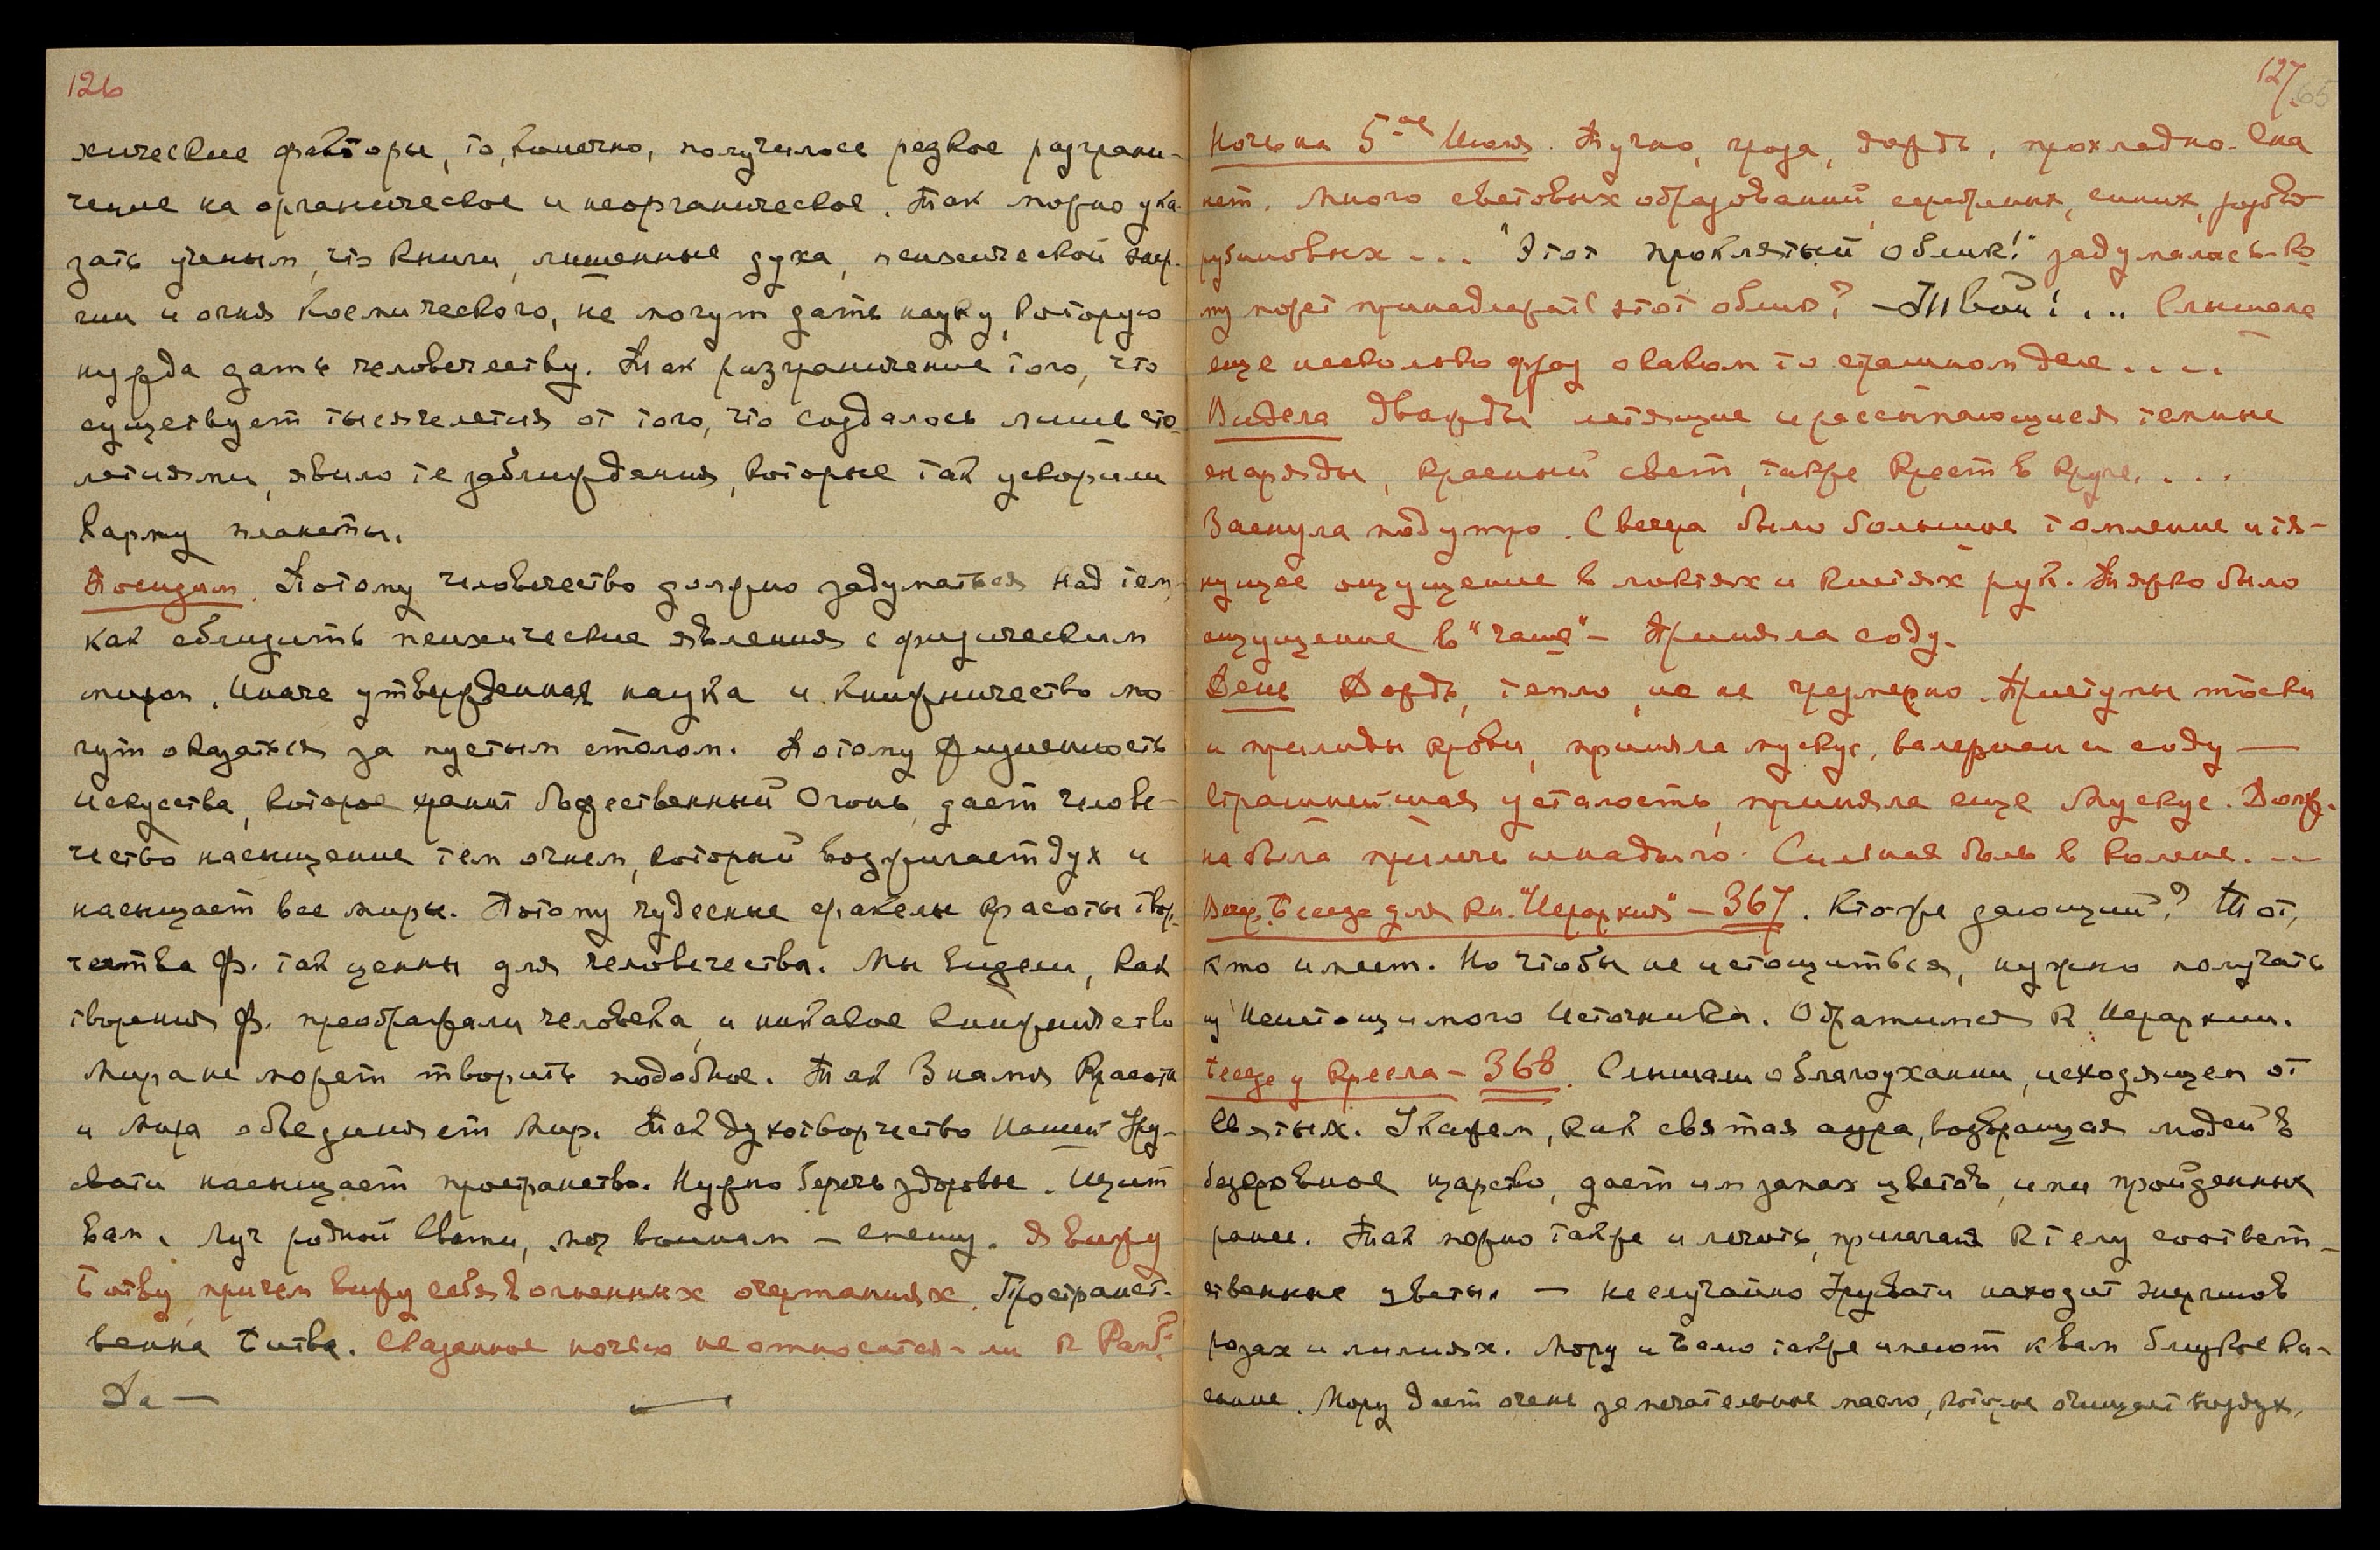 126
хические факторы, то, конечно, получилось резкое разграни-
чение на органическое и неорганическое. Так можно ука-
зать ученым, что книги, лишенные духа, психической энер-
гии и огня Космического, не могут дать науку, которую
нужда дать человечеству. Так разграничение того, что
существует тысячелетия от того, что создалось лишь сто-
летиями, явило те заблуждения, которые так ускорили
Карму планеты.
Посидим. Потому человечество должно задуматься над тем,
как сблизить психические явления с физическим
миром. Иначе утвержденная наука и книжничество мо-
гут оказаться за пустым столом. Потому
искусства, которое хранит божественный Огонь, дает челове-
чество насыщение тем огнем, который возжигает дух и
насыщает все миры. Потому чудесные факелы красоты твор-
чества Ф. так ценны для человечества. Мы видели, как
творения Ф. преображали человека, и никакое книжничество
Мира не может творить подобное. Так Знамя Красоты
и Мира объединяет Мир. Так духотворчество Нашей Уру-
свати насыщает пространство. Нужно беречь здоровье. Щит
вам, Луч родной Свати, воинам – спешу. Я вижу
Битву, причем вижу себя в огненных очертаниях. Пространст-
венна Битва. Сказанное ночью не относится-ли к
Да —
127
65
Ночь на 5-ое Июля. Тучно, гроза, дождь, прохладно. Спа
нет. Много световых образований, серебряных, синих, розово
рубиновых... "Этот проклятый облик!" задумалась-ко
му может принадлежать этот облик? – Твой!... Слышала
еще несколько фраз о каком то страшном деле....
Видела дважды летящие и рассыпающиеся темные
снаряды, красный свет, также крест в круге....
Заснула под утро. С вечера было большое томление и тя-
нущее ощущение в локтях и кистях рук. Тяжко было
ощущение в "чаше" – Приняла соду.
День Дождь, тепло, но не чрезмерно. Приступы тоски
и приливы крови, приняла мускус, валериан и соду —
Страшнейшая усталость, приняла еще Мускус. Долж-
на была прилечь не надолго. Сильная боль в колене...
Веч. Беседа для Кн. "Иерархия" – 367. Кто же дающий? Тот,
кто имеет. Но чтобы не истощиться, нужно получать
из Неистощимого Источника. Обратимся к Иерархии.
Беседа у Кресла – 368. Слышали о благоухании, исходящем от
Святых. Скажем, как святая аура, возвращая людей в
бескровное царство, дает им запах цветов, ими пройденных
ранее. Так можно также и лечить, прилагая к телу соответ-
ственные цветы. – не случайно Урусвати находит энергию в
розах и лилиях. Мору и Балю также имеют к вам близкое ка-
сание. Мору дает очень замечательное масло, которое очищает воздух,